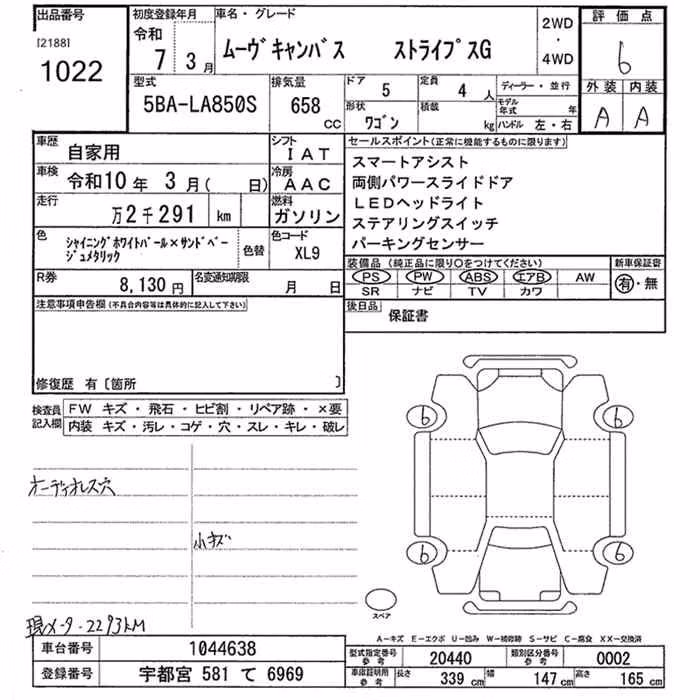 出品番号 初度登録年月 車名・グレード 2WD ・ 4WD 評価点
[2188] 1022 令和 7 3月 ムーヴキャンバス ストライプスG 6
型式 5BA-LA850S 排気量 658 CC ドア 5 定員 4 人 ディーラー・並行 外装 内装
形状 ワゴン 積載 kg モデル年式 年 ハンドル 左・右 A A
車歴 自家用 シフト IAT セールスポイント(正常に機能するものに限ります)
車検 令和10年 3月( 日) 冷房 AAC スマートアシスト
両側パワースライドドア
走行 万2千291 km 燃料 ガソリン LEDヘッドライト
ステアリングスイッチ
色 シャイニングホワイトパール×サンドベージュメタリック 色替 色コード XL9 パーキングセンサー
装備品(純正品に限り〇をつけてください) 新車保証書
R券 8,130円 名変通知期限 月 日 PS PW ABS エアB AW 有・無
SR ナビ TV カワ
注意事項申告欄(不具合内容等は具体的に記入して下さい) 後日品 保証書
修復歴 有〔箇所 〕
検査員記入欄 FW キズ・飛石・ヒビ割・リペア跡・×要
内装 キズ・汚レ・コゲ・穴・スレ・キレ・破レ
6 6
オーディオレス穴
小キズ
6 6
スペア
現メータ-2293KM
A-キズ E-エクボ U-凹み W-補修跡 S-サビ C-腐食 XX-交換済
車台番号 1044638 型式指定番号 参考 20440 類別区分番号 参考 0002
登録番号 宇都宮 581 て 6969 車庫証明用 参考 長さ 339 cm 幅 147 cm 高さ 165 cm